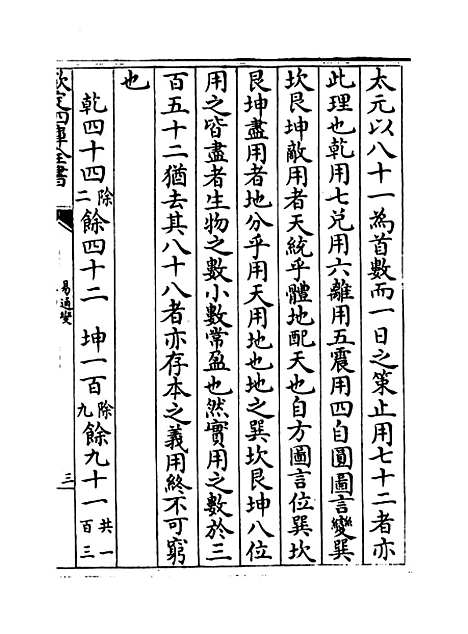 太元以八十一為首數而一日之策止用七十二者亦
此理也乾用七兌用六離用五震用四自圓圖言變巽
坎艮坤敵用者天統乎體地配天也自方圖言位巽坎
艮坤盡用者地分乎用天用地也地之巽坎艮坤八位
用之皆盡者生物之數小數常盈也然實用之數於三
百五十二猶去其八十八者亦存本之義用終不可窮
也
乾四十四除二餘四十二 坤一百除九餘九十一共一百三
欽定四庫全書
易通變
三